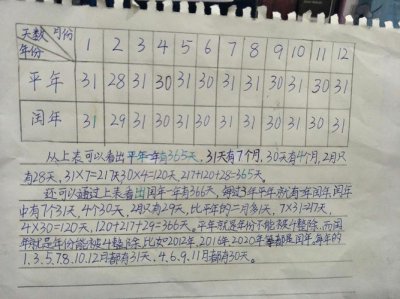 天数 月份
年份
1 2 3 4 5 6 7 8 9 10 11 12
平年 31 28 31 30 31 30 31 31 30 31 30 31
闰年 31 29 31 30 31 30 31 31 30 31 30 31
从上表可以看出平年一年有365天,31天有7个月,30天有4个月,2月只
有28天,31×7=217天30×4=120天,217+120+28=365天。
还可以通过上表看出闰年一年有366天,每过3年平年就有一年闰年,闰年
中有7个31天,4个30天,2月只有29天,比平年的二月多1天,7×31=217天,
4×30=120天,120+217+29=366天。平年就是年份不能被4整除,而闰
年就是年份能被4整除,比如2012年,2016年,2020年等都是闰年,每年的
1.3.5.7.8.10.12月都有31天,4.6.9.11月都有30天。